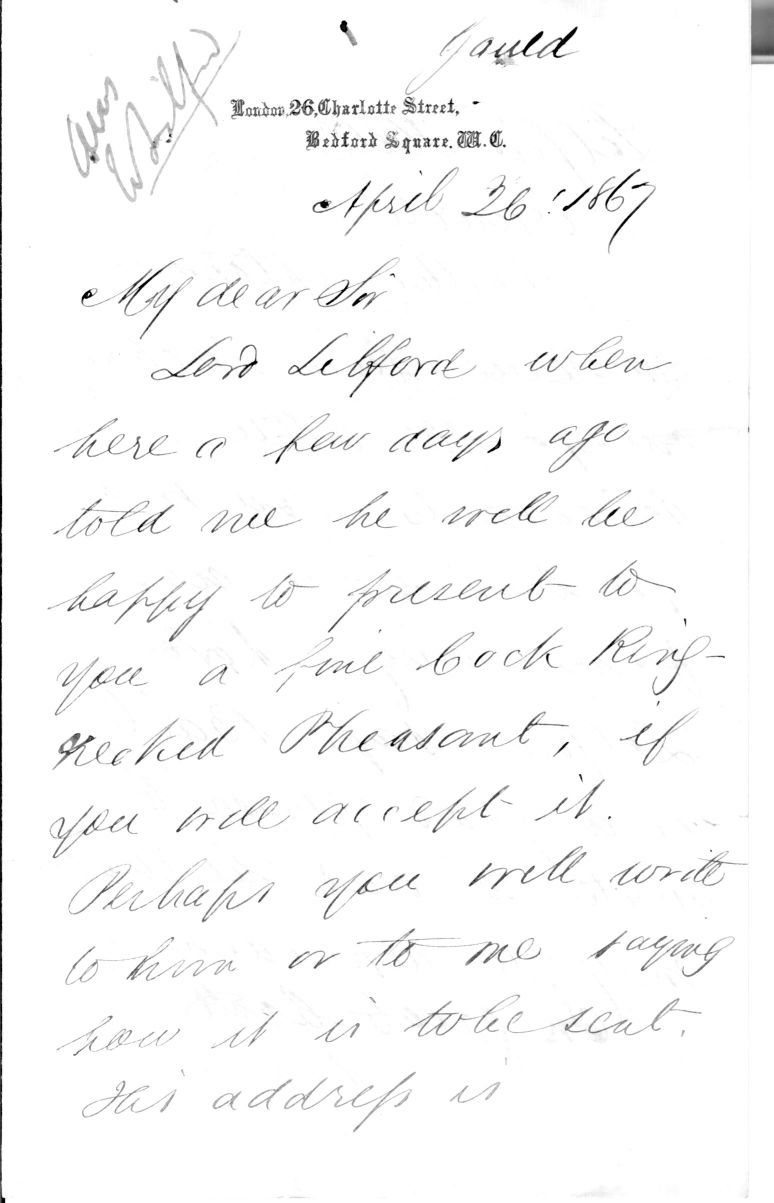 Gould
Ans
Ld Lilford
London, 26, Charlotte Street,
Bedford Square. W.C.
April 26: 1867
My dear Sir
Lord Lilford when
here a few days ago
told me he will be
happy to present to
you a fine Cock Ring-
necked Pheasant, if
you will accept it.
Perhaps you will write
to him or to me saying
how it is to be sent.
His address is